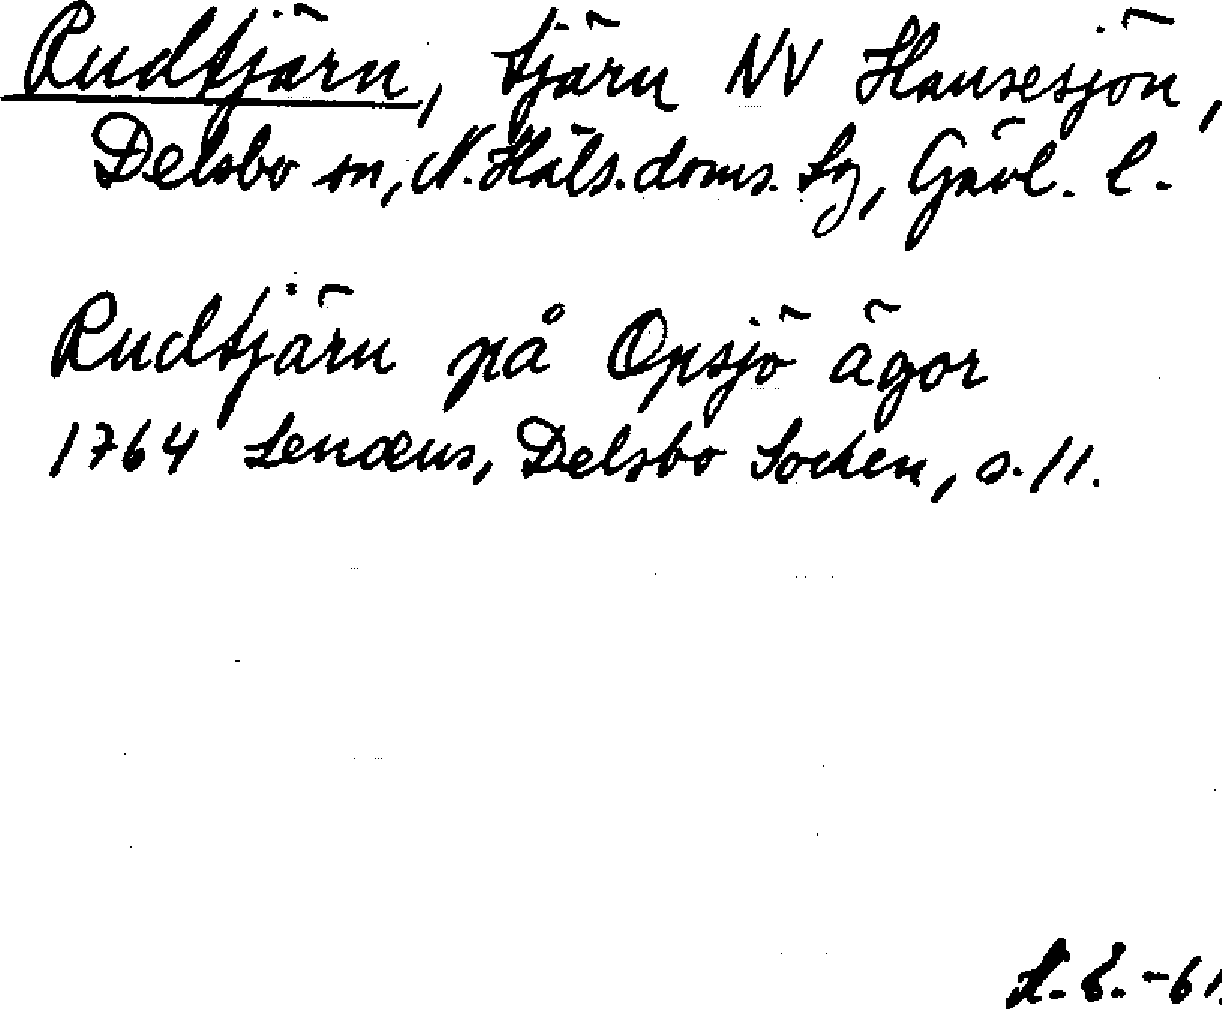 Rudtjärn, tjärn NV Hansesjön,
Delsbo sn, N. Häls. doms. sg, Gävl. l.
Rudtjärn på Opsjö ägor
1764 Lenæus, Delsbo Socken, s. 11.
-61.